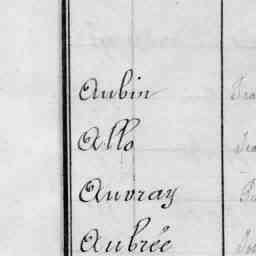 Aubin
Allo
Auvray
Aubrée